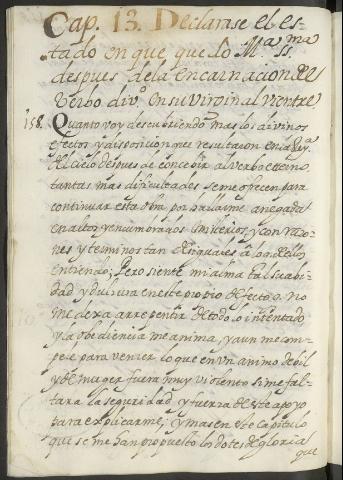 Cap. 13. Declarase el es-
tado en que quedo M.ª SS.ma
despues dela encarnacion del
Verbo div.º en su virginal vientre
158. Quanto voy descubriendo mas los divinos
efectos y disposicion que resultaron en la Rey.ª
del cielo despues de concebir al verbo eterno
tantas mas dificultades seme ofrecen para
continuar esta obra por hallarme anegada
en altos y enumbrados misterios, y con raço-
nes y terminos tan desiguales a lo que dellos
entiendo; Pero siente mi alma tal suabi-
dad y dulçura en este propio defecto q. no
me dexa arrepentir de todo lo intentado
y la obediencia me anima, y aun me com-
pele para vencer lo que en un animo debil
y de muger fuera muy violento si me fal-
tara la seguridad y fuerza de este apoyo
para explicarme; y mas en este capitulo
que se me han propuesto los dotes de gloria
que